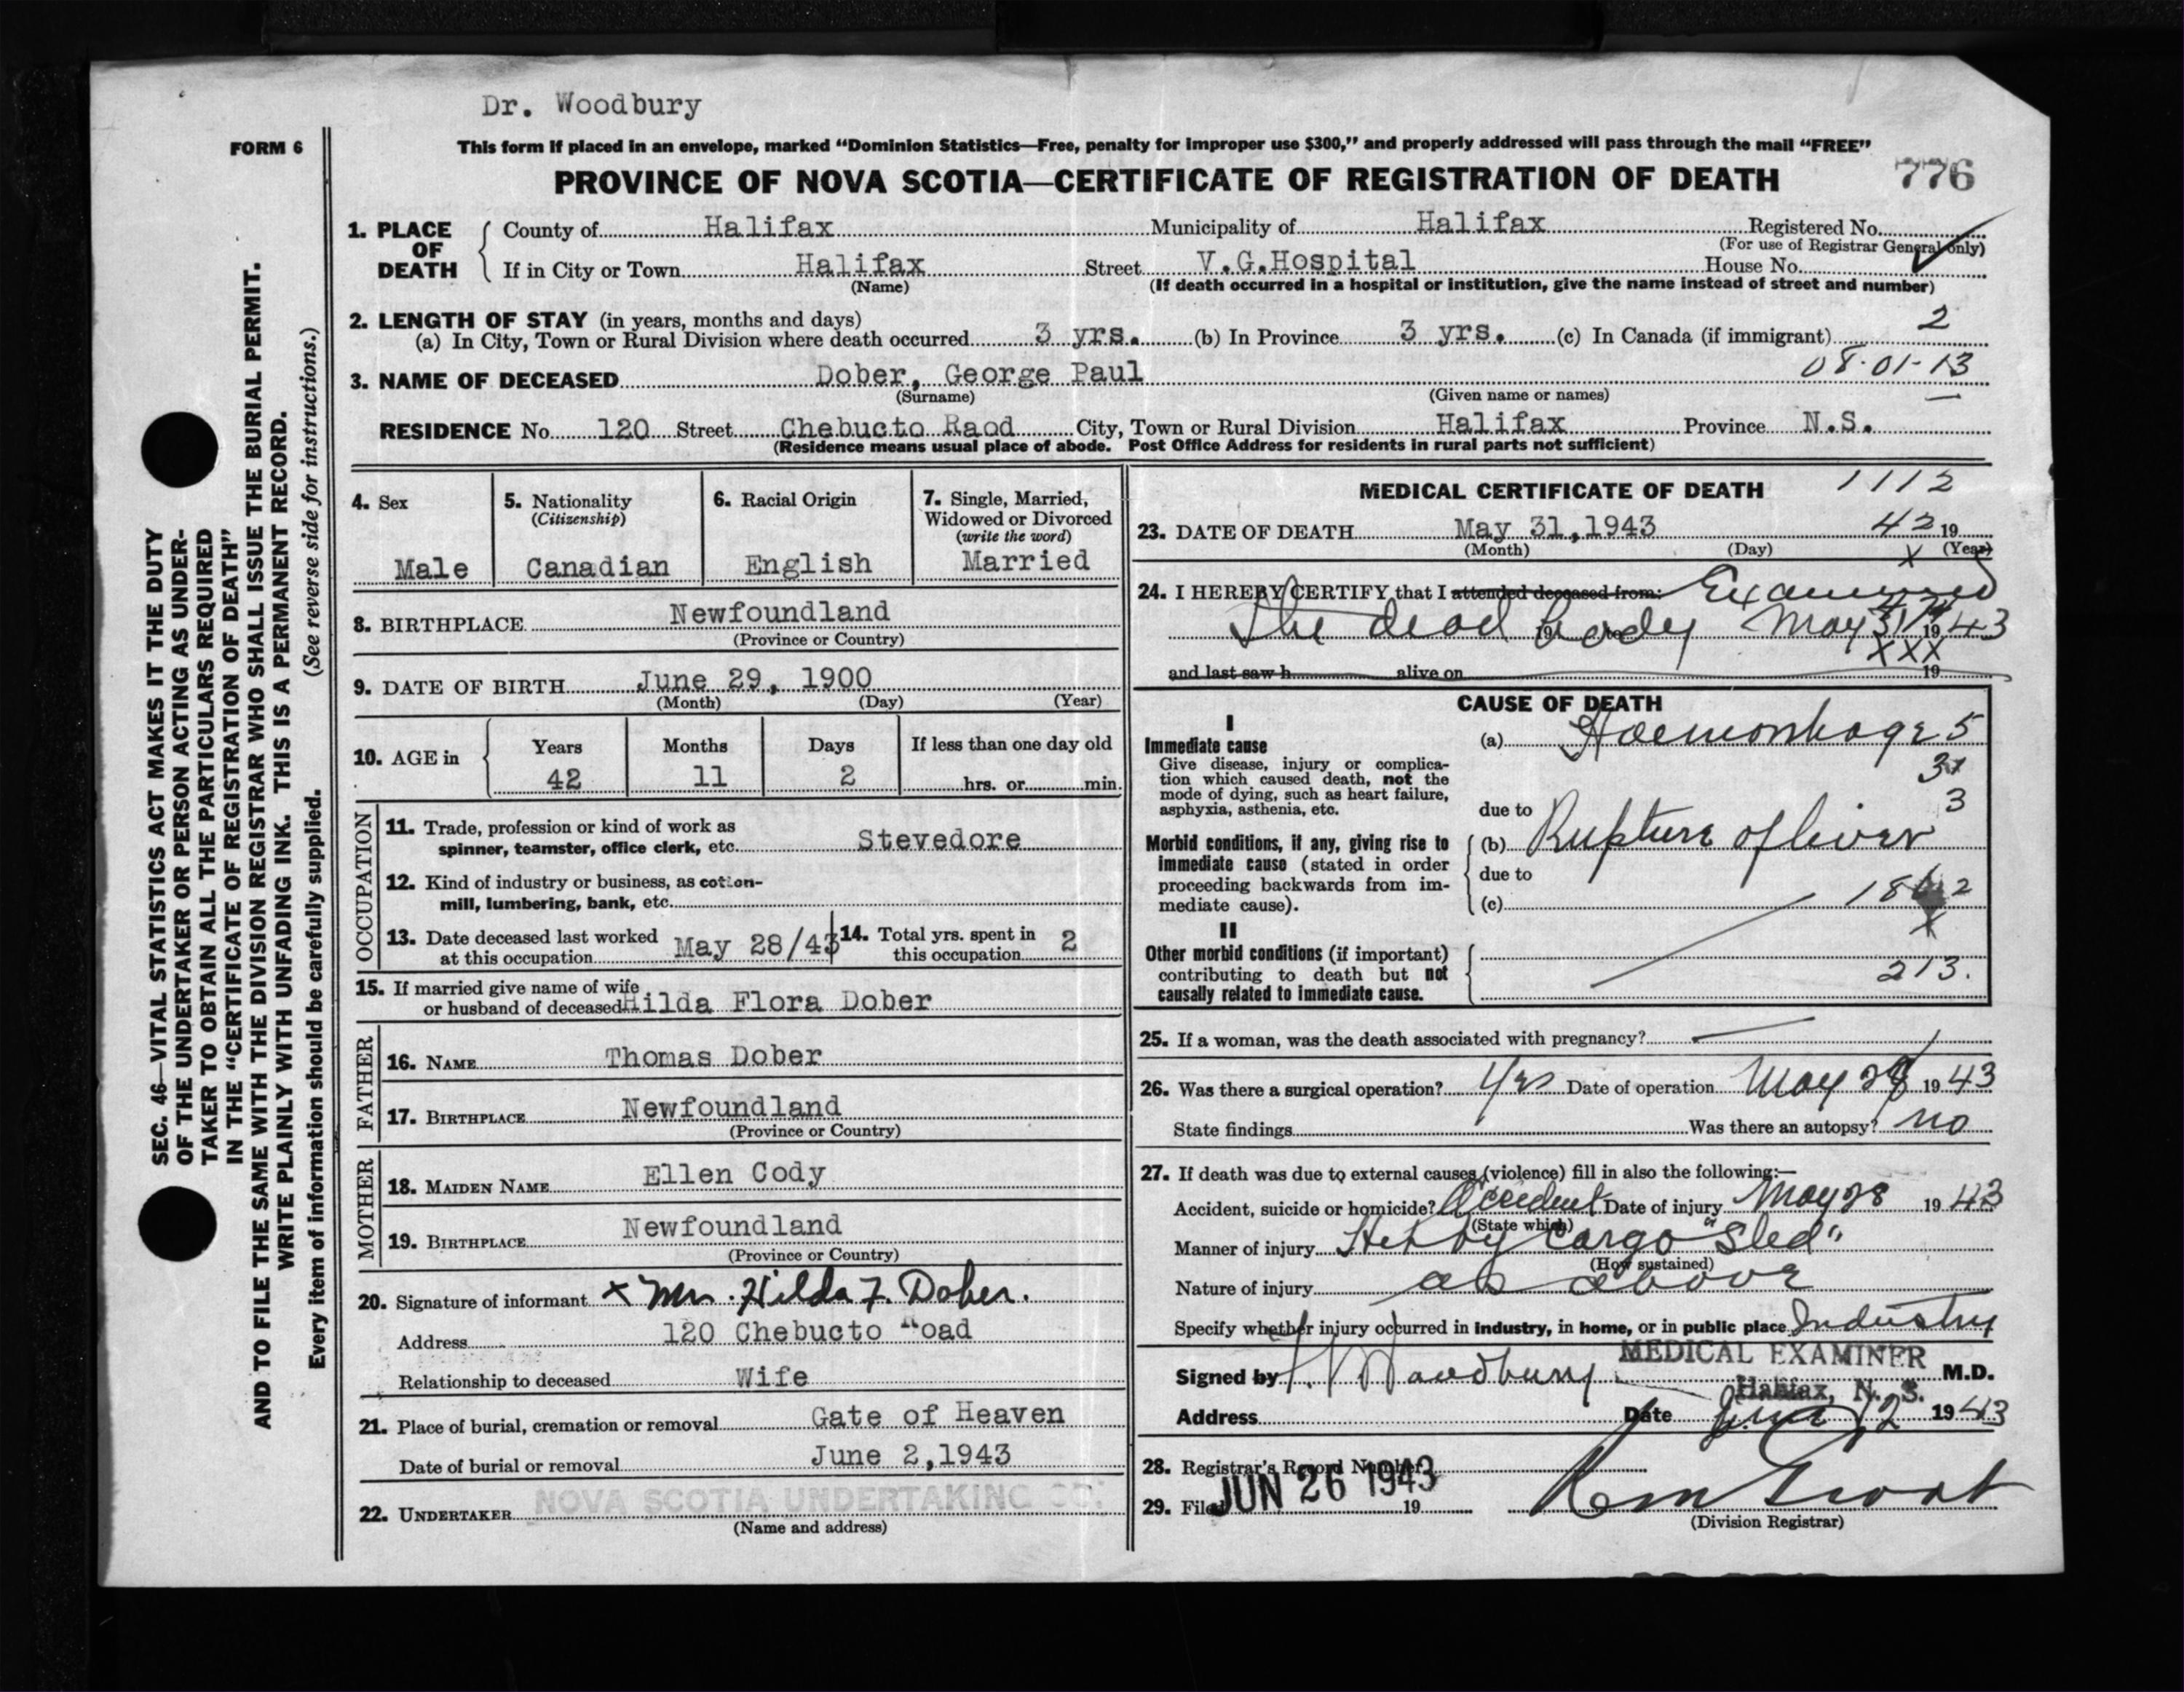 Dr. Woodbury
FORM 6
This form if placed in an envelope, marked "Dominion Statistics—Free, penalty for improper use $300," and properly addressed will pass through the mail "FREE"
PROVINCE OF NOVA SCOTIA—CERTIFICATE OF REGISTRATION OF DEATH 776
1. PLACE OF DEATH
County of Halifax Municipality of Halifax Registered No.
(For use of Registrar General only)
If in City or Town Halifax Street V.G.Hospital House No.
(Name) (If death occurred in a hospital or institution, give the name instead of street and number)
2. LENGTH OF STAY (in years, months and days) 2
(a) In City, Town or Rural Division where death occurred 3 yrs. (b) In Province 3 yrs. (c) In Canada (if immigrant)
08-01-13
3. NAME OF DECEASED Dober, George Paul
(Surname) (Given name or names)
RESIDENCE No. 120 Street Chebucto Raod City, Town or Rural Division Halifax Province N.S.
(Residence means usual place of abode. Post Office Address for residents in rural parts not sufficient)
4. Sex
Male
5. Nationality
(Citizenship)
Canadian
6. Racial Origin
English
7. Single, Married,
Widowed or Divorced
(write the word)
Married
8. BIRTHPLACE Newfoundland
(Province or Country)
9. DATE OF BIRTH June 29, 1900
(Month) (Day) (Year)
10. AGE in
Years Months Days If less than one day old
42 11 2 hrs. or min.
OCCUPATION
11. Trade, profession or kind of work as
spinner, teamster, office clerk, etc. Stevedore
12. Kind of industry or business, as cotton-
mill, lumbering, bank, etc.
13. Date deceased last worked
at this occupation May 28/43
14. Total yrs. spent in
this occupation 2
15. If married give name of wife
or husband of deceased Hilda Flora Dober
FATHER
16. NAME Thomas Dober
17. BIRTHPLACE Newfoundland
(Province or Country)
MOTHER
18. MAIDEN NAME Ellen Cody
19. BIRTHPLACE Newfoundland
(Province or Country)
20. Signature of informant x Mrs. Hilda F. Dober.
Address 120 Chebucto Road
Relationship to deceased Wife
21. Place of burial, cremation or removal Gate of Heaven
Date of burial or removal June 2,1943
22. UNDERTAKER NOVA SCOTIA UNDERTAKING CO.
(Name and address)
MEDICAL CERTIFICATE OF DEATH 1112
23. DATE OF DEATH May 31,1943 42 19
(Month) (Day) (Year)
x
24. I HEREBY CERTIFY that I attended deceased from: Examined
the dead body May 31 1943
XXX
and last saw h alive on 19
CAUSE OF DEATH
I
Immediate cause
Give disease, injury or complica-
tion which caused death, not the
mode of dying, such as heart failure,
asphyxia, asthenia, etc.
(a) Haemorrhage 5
3
due to
Morbid conditions, if any, giving rise to
immediate cause (stated in order
proceeding backwards from im-
mediate cause).
(b) Rupture of liver
due to
(c)
II
Other morbid conditions (if important)
contributing to death but not
causally related to immediate cause.
213.
25. If a woman, was the death associated with pregnancy?
26. Was there a surgical operation? Yes Date of operation May 28 1943
State findings Was there an autopsy? no
27. If death was due to external causes (violence) fill in also the following:—
Accident, suicide or homicide? Accident Date of injury May 28 1943
(State which)
Manner of injury Hit by cargo "Sled"
(How sustained)
Nature of injury as above
Specify whether injury occurred in industry, in home, or in public place Industry
Signed by Woodbury MEDICAL EXAMINER M.D.
Halifax, N. S.
Address Date June 12 1943
28. Registrar's Record Number
29. Filed JUN 26 1943 19
(Division Registrar)
SEC. 46—VITAL STATISTICS ACT MAKES IT THE DUTY
OF THE UNDERTAKER OR PERSON ACTING AS UNDER-
TAKER TO OBTAIN ALL THE PARTICULARS REQUIRED
IN THE "CERTIFICATE OF REGISTRATION OF DEATH"
AND TO FILE THE SAME WITH THE DIVISION REGISTRAR WHO SHALL ISSUE THE BURIAL PERMIT.
WRITE PLAINLY WITH UNFADING INK. THIS IS A PERMANENT RECORD.
Every item of information should be carefully supplied. (See reverse side for instructions.)